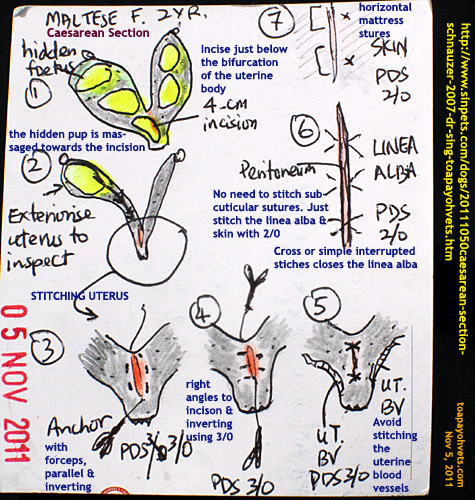 MALTESE F. 2YR.
Caesarean Section
hidden
foetus
1
Incise just below
the bifurcation
of the uterine
body
4-cm
incision
the hidden pup is mas-
saged towards the incision
2
Exteriorise
uterus to
inspect
STITCHING UTERUS
7
horizontal
mattress
stures
SKIN
PDS
2/0
6
LINEA
ALBA
Peritoneum
PDS
2/0
No need to stitch sub
cuticular sutures. Just
stitch the linea alba &
skin with 2/0
Cross or simple interrupted
stiches closes the linea alba
3
Anchor
with
forceps,
parallel &
inverting
PDS 3/0
4
right
angles to
incison &
inverting
using 3/0
PDS 3/0
5
UT.
BV
UT.
BV
PDS 3/0
Avoid
stitching
the
uterine
blood
vessels
05 NOV 2011
http://www.sinpets.com/dogs/20111050caesarean-section-
schnauzer-2007-dr-sing-toapayohvets.htm
toapayohvets.com
Nov 5, 2011